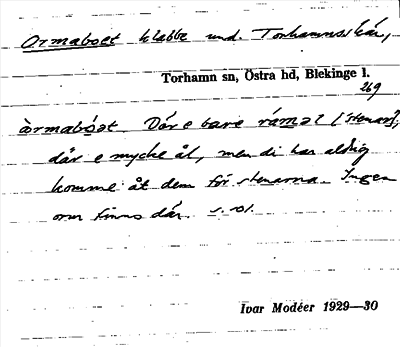 Ormaboet klabbe und. Torhamnsskär,
Torhamn sn, Östra hd, Blekinge l.
269
òrmabóət Där e bare ráməl [stenar],
där e mycke ål, men di har aldrig
komme åt dem för stenarna. Ingen
orm finns där. s. st.
Ivar Modéer 1929—30